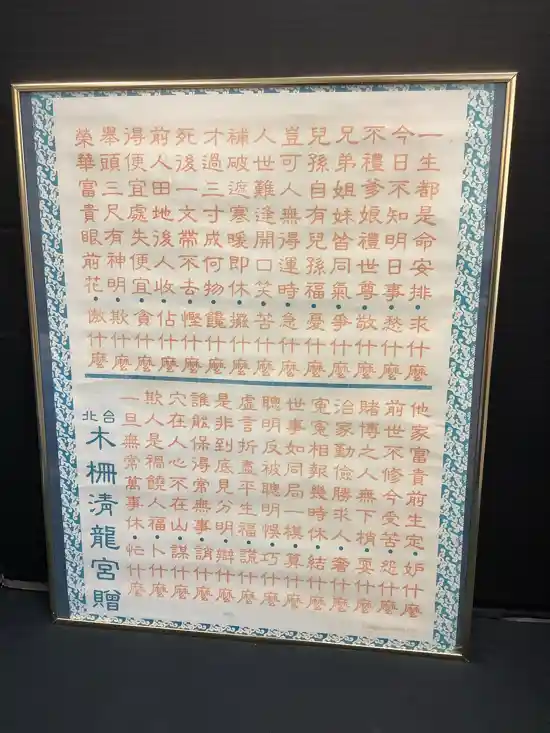 一生都是命安排•求什麼
今日不知明日事•愁什麼
不禮爹娘禮世尊•敬什麼
兄弟姐妹皆同氣•爭什麼
兒孫自有兒孫福•憂什麼
豈可人無得運時•急什麼
人世難逢開口笑•苦什麼
補破遮寒暖即休•擺什麼
才過三寸成何物•饞什麼
死後一文帶不去•慳什麼
前人田地後人收•佔什麼
得便宜處失便宜•貪什麼
舉頭三尺有神明•欺什麼
榮華富貴眼前花•傲什麼
他家富貴前生定•妒什麼
前世不修今受苦•怨什麼
賭博之人無下梢•耍什麼
治家勤儉勝求人•奢什麼
冤冤相報幾時休•結什麼
世事如同局一棋•算什麼
聰明反被聰明悞•巧什麼
虛言折盡平生福•謊什麼
是非到底見分明•辯什麼
誰能保得常無事•誚什麼
穴在人心不在山•謀什麼
欺人是禍饒人福•卜什麼
一旦無常萬事休•忙什麼
台北
木柵清龍宮贈